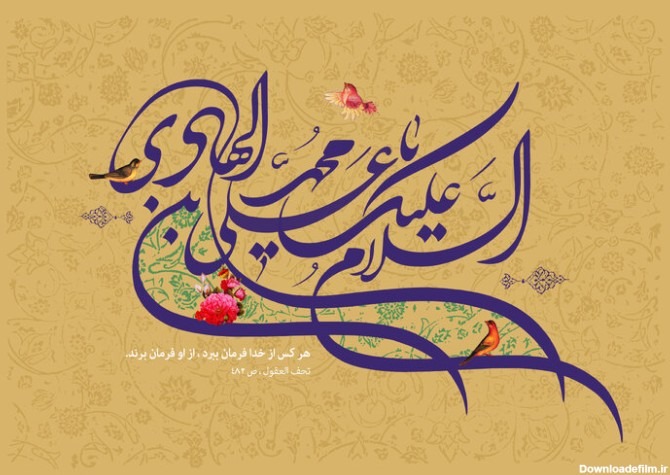 السلام علیک یا علی بن محمد الهادی
هر کس از خدا فرمان ببرد ، از او فرمان برند.
تحف العقول ، ص ۴۸۲
Downloadefilm.ir